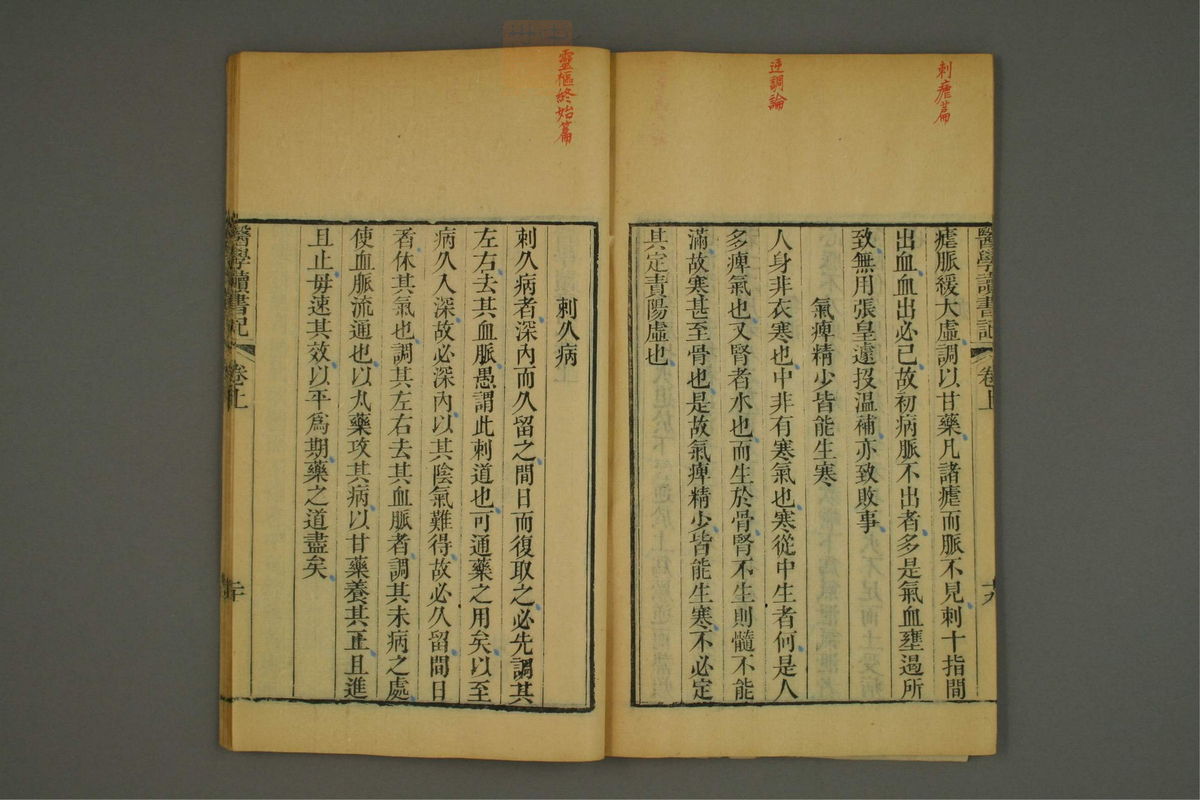 刺瘧篇
逆調論
醫學讀書記 卷上
十九
瘧脈緩大虛調以甘藥凡諸瘧而脈不見刺十指間
出血血出必已故初病脈不出者多是氣血壅遏所
致無用張皇遽投温補亦致敗事
氣痺精少皆能生寒
人身非衣寒也中非有寒氣也寒從中生者何是人
多痺氣也又腎者水也而生於骨腎不生則髓不能
滿故寒甚至骨也是故氣痺精少皆能生寒不必定
其定責陽虛也
靈樞終始篇
刺久病
刺久病者深內而久留之間日而復取之必先調其
左右去其血脈愚謂此刺道也可通藥之用矣以至
病久入深故必深內以其陰氣難得故必久留間日
者休其氣也調其左右去其血脈者調其未病之處
使血脈流通也以丸藥攻其病以甘藥養其正且進
且止毋速其效以平爲期藥之道盡矣
醫學讀書記 卷上
二十